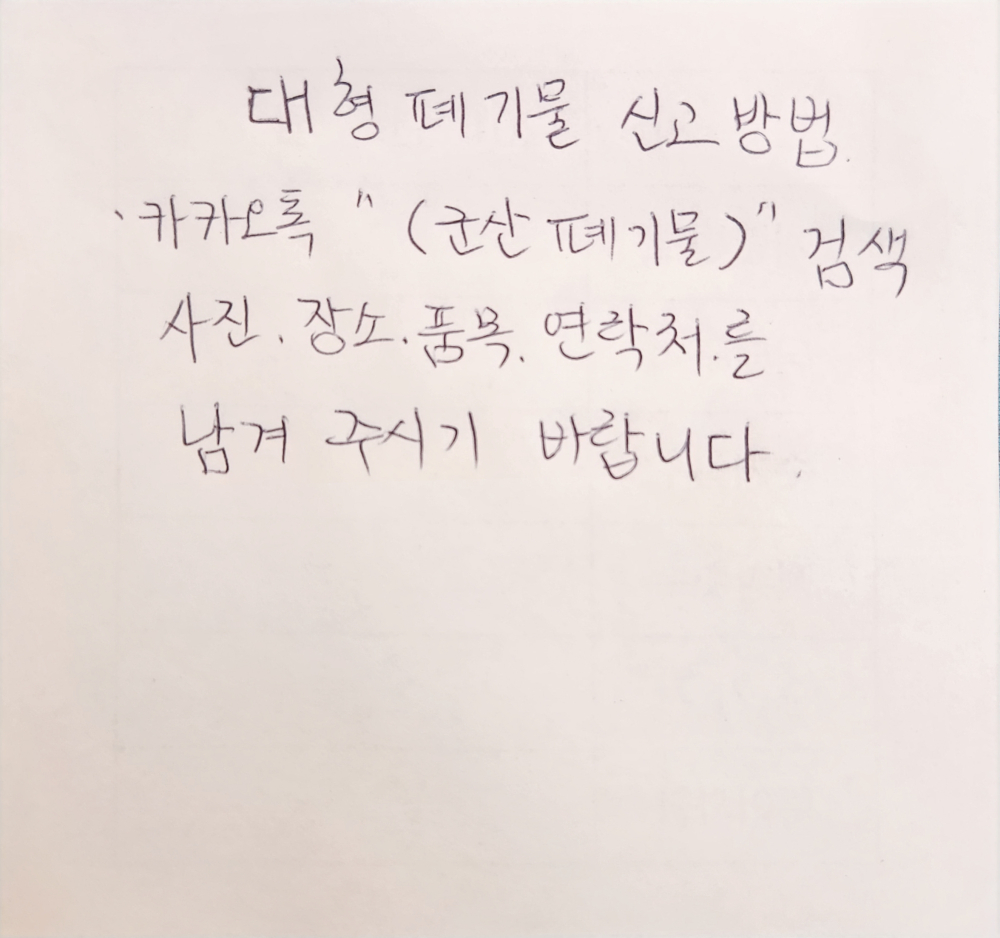 대형 폐기물 신고방법.
· 카카오톡 "(군산 폐기물)" 검색
사진. 장소. 품목. 연락처.를
남겨 주시기 바랍니다.